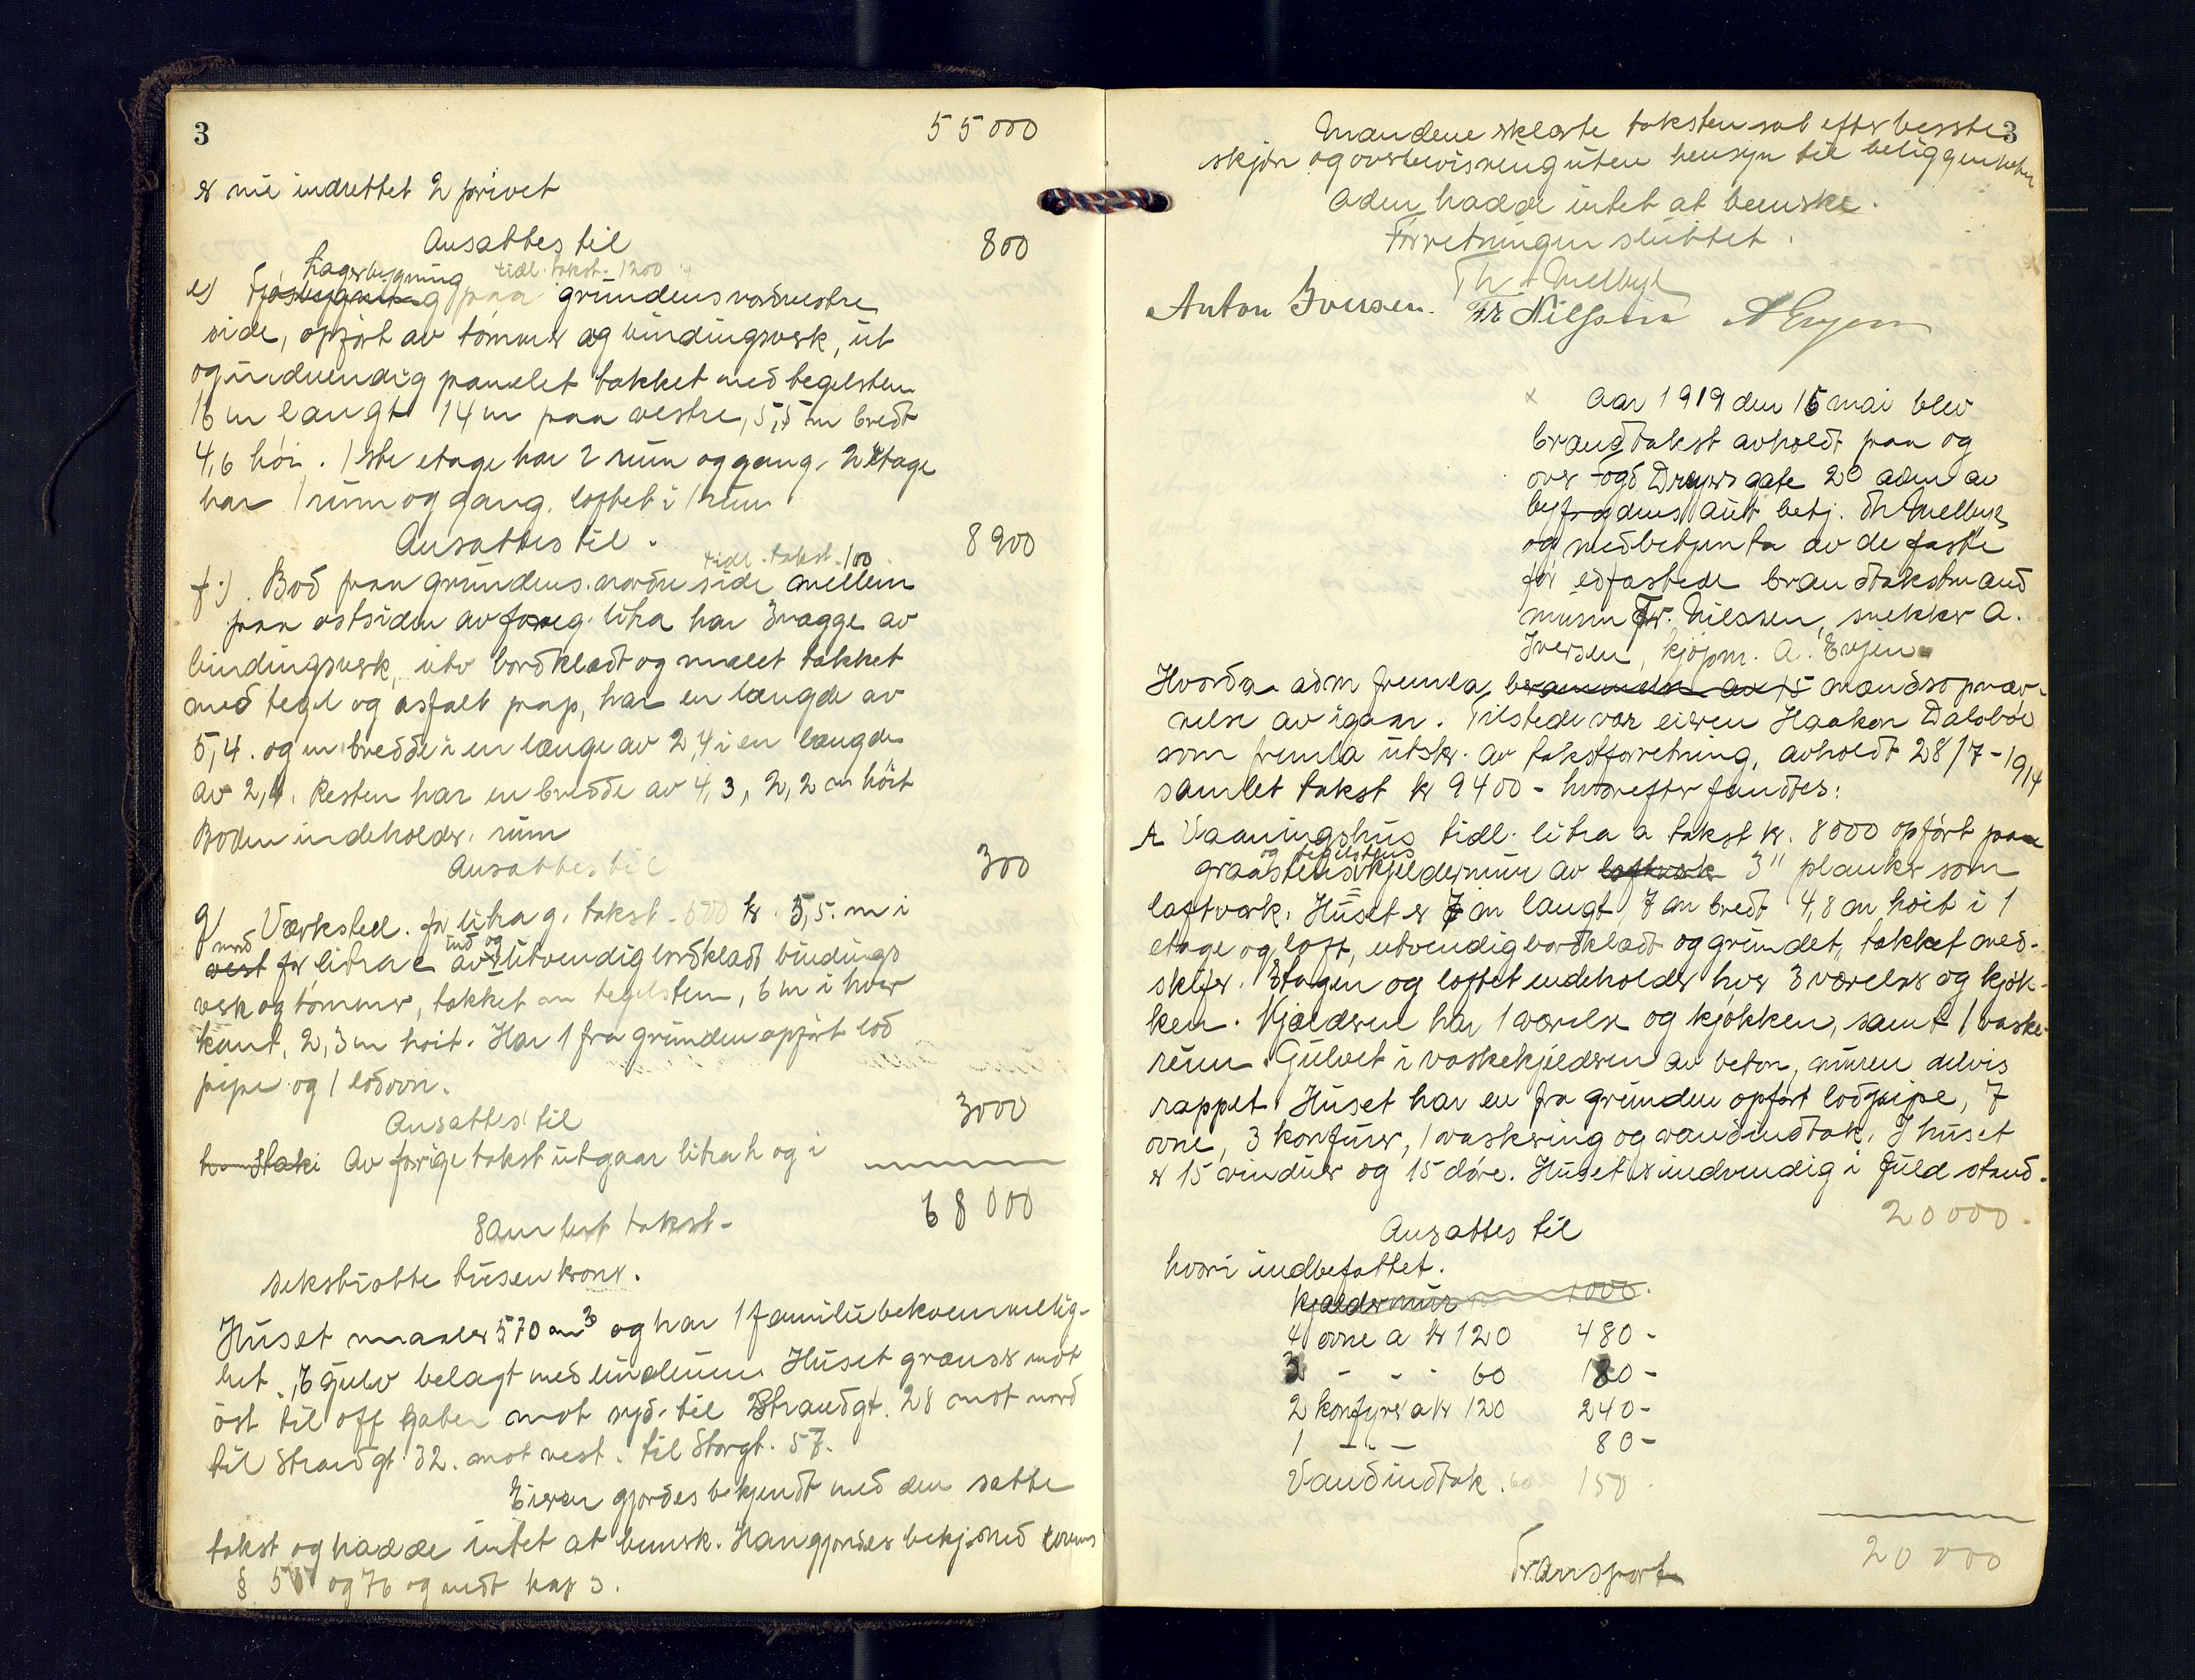 3
55000
er nu indrettet 2 privet
Ansattes til 800
Lagerbygning tidl. takst. 1200
e) Fjøsbygning paa grundens nordvestre
side, opført av tømmer og bindingsverk, ut
og indvendig panelet tækket med tegelsten
16 m langt 14 m paa vestre, 5,5 m bredt
4,6 høi. 1ste etage har 2 rum og gang, 2 etage
har 1 rum og gang. loftet i 1 rum
Ansattes til. 8900
tidl. takst. 100
f.) Bod paa grundens nordre side mellem
paa østsiden av foreg. litra har 3 vægge av
bindingsverk, utv bordklædt og malet tækket
med tegl og asfalt pap, har en længde av
5,4. og en bredde i en længe av 2,4 i en længde
av 2,4. Resten har en bredde av 4,3, 2,2 m høit
Boden indeholder 1 rum
Ansattes til 300
g) Værksted. før litra g. takst. 600 kr. 5,5. m i
nord ind og
vest for litra e av utvendig bordklædt bindings
verk og tømmer, tækket m tegelsten, 6 m i hver
kant, 2,3 m høit. Har 1 fra grunden opført lod
pipe og 1 lodovn.
Ansattes til 3000
Av forrige takst utgaar litra h og i
68000
Samlet takst-
sekstiotte tusen kroner.
Huset maaler 570 m3 og har 1 familiebekvemmelig-
het. 6 gulv belagt med linoleum. Huset grænser mot
øst til off gaten mot syd. til Strandgt. 28 mot nord
til Strandgt 32. mot vest. til Storgt. 57.
Eieren gjordes bekjendt med den satte
takst og hadde intet at bemerk. Han gjordes bekj. med lovens
§ 50 og 76 og midt kap 3.
3
Mændene erklærte taksten sat efter bedste
skjøn og overbevisning uten hensyn til beliggenheten
Adm hadde intet at bemerke.
Forretningen sluttet.
Th Melbye
Anton Iversen. Fr Nilssen A Evjen
x Aar 1919 den 16 mai blev
brandtakst avholdt paa og
over Fogd Dreyers gate 20 adm av
byfogdens aut betj. Th Melbye
og medbetjente av de faste
før edfæstede brandtakstmænd
murm Fr. Nilssen, snekker A.
Iversen, kjøpm. A. Evjen
Hvorda adm fremla berammelse av 15 mændsopnæv-
nelse av igaar. Tilstede var eieren Haakon Dalsbøe
som fremla utskr. av takstforretning, avholdt 28/7-1914
samlet takst kr 9400- hvorefter fandtes:
A Vaaningshus tidl. litra a takst kr. 8000 opført paa
og tegelstens
graastens kjeldermur av laftverk 3" planker som
laftverk. Huset er 7 m langt 7 m bredt 4,8 m høit i 1
etage og loft, utvendig bordklædt og grundet, tækket med-
skifer. Etagen og loftet indeholder hver 3 værelser og kjøk-
ken. Kjælderen har 1 værelse og kjøkken, samt 1 vaske-
rum. Gulvet i vaskekjelderen av beton, muren delvis
rappet. Huset har en fra grunden opført lodpipe, 7
ovne, 3 komfurer, 1 vaskering og vandindtak. I huset
er 15 vinduer og 15 døre. Huset er indvendig i fuld stand.
20000.
Ansattes til
hvori indbefattet.
Kjældermur 1000.
4 ovne a kr 120 480-
3 - - - 60 180-
2 komfyrer a kr 120 240-
1 - - - 80-
Vandindtak. 60 150
Transport 20 000